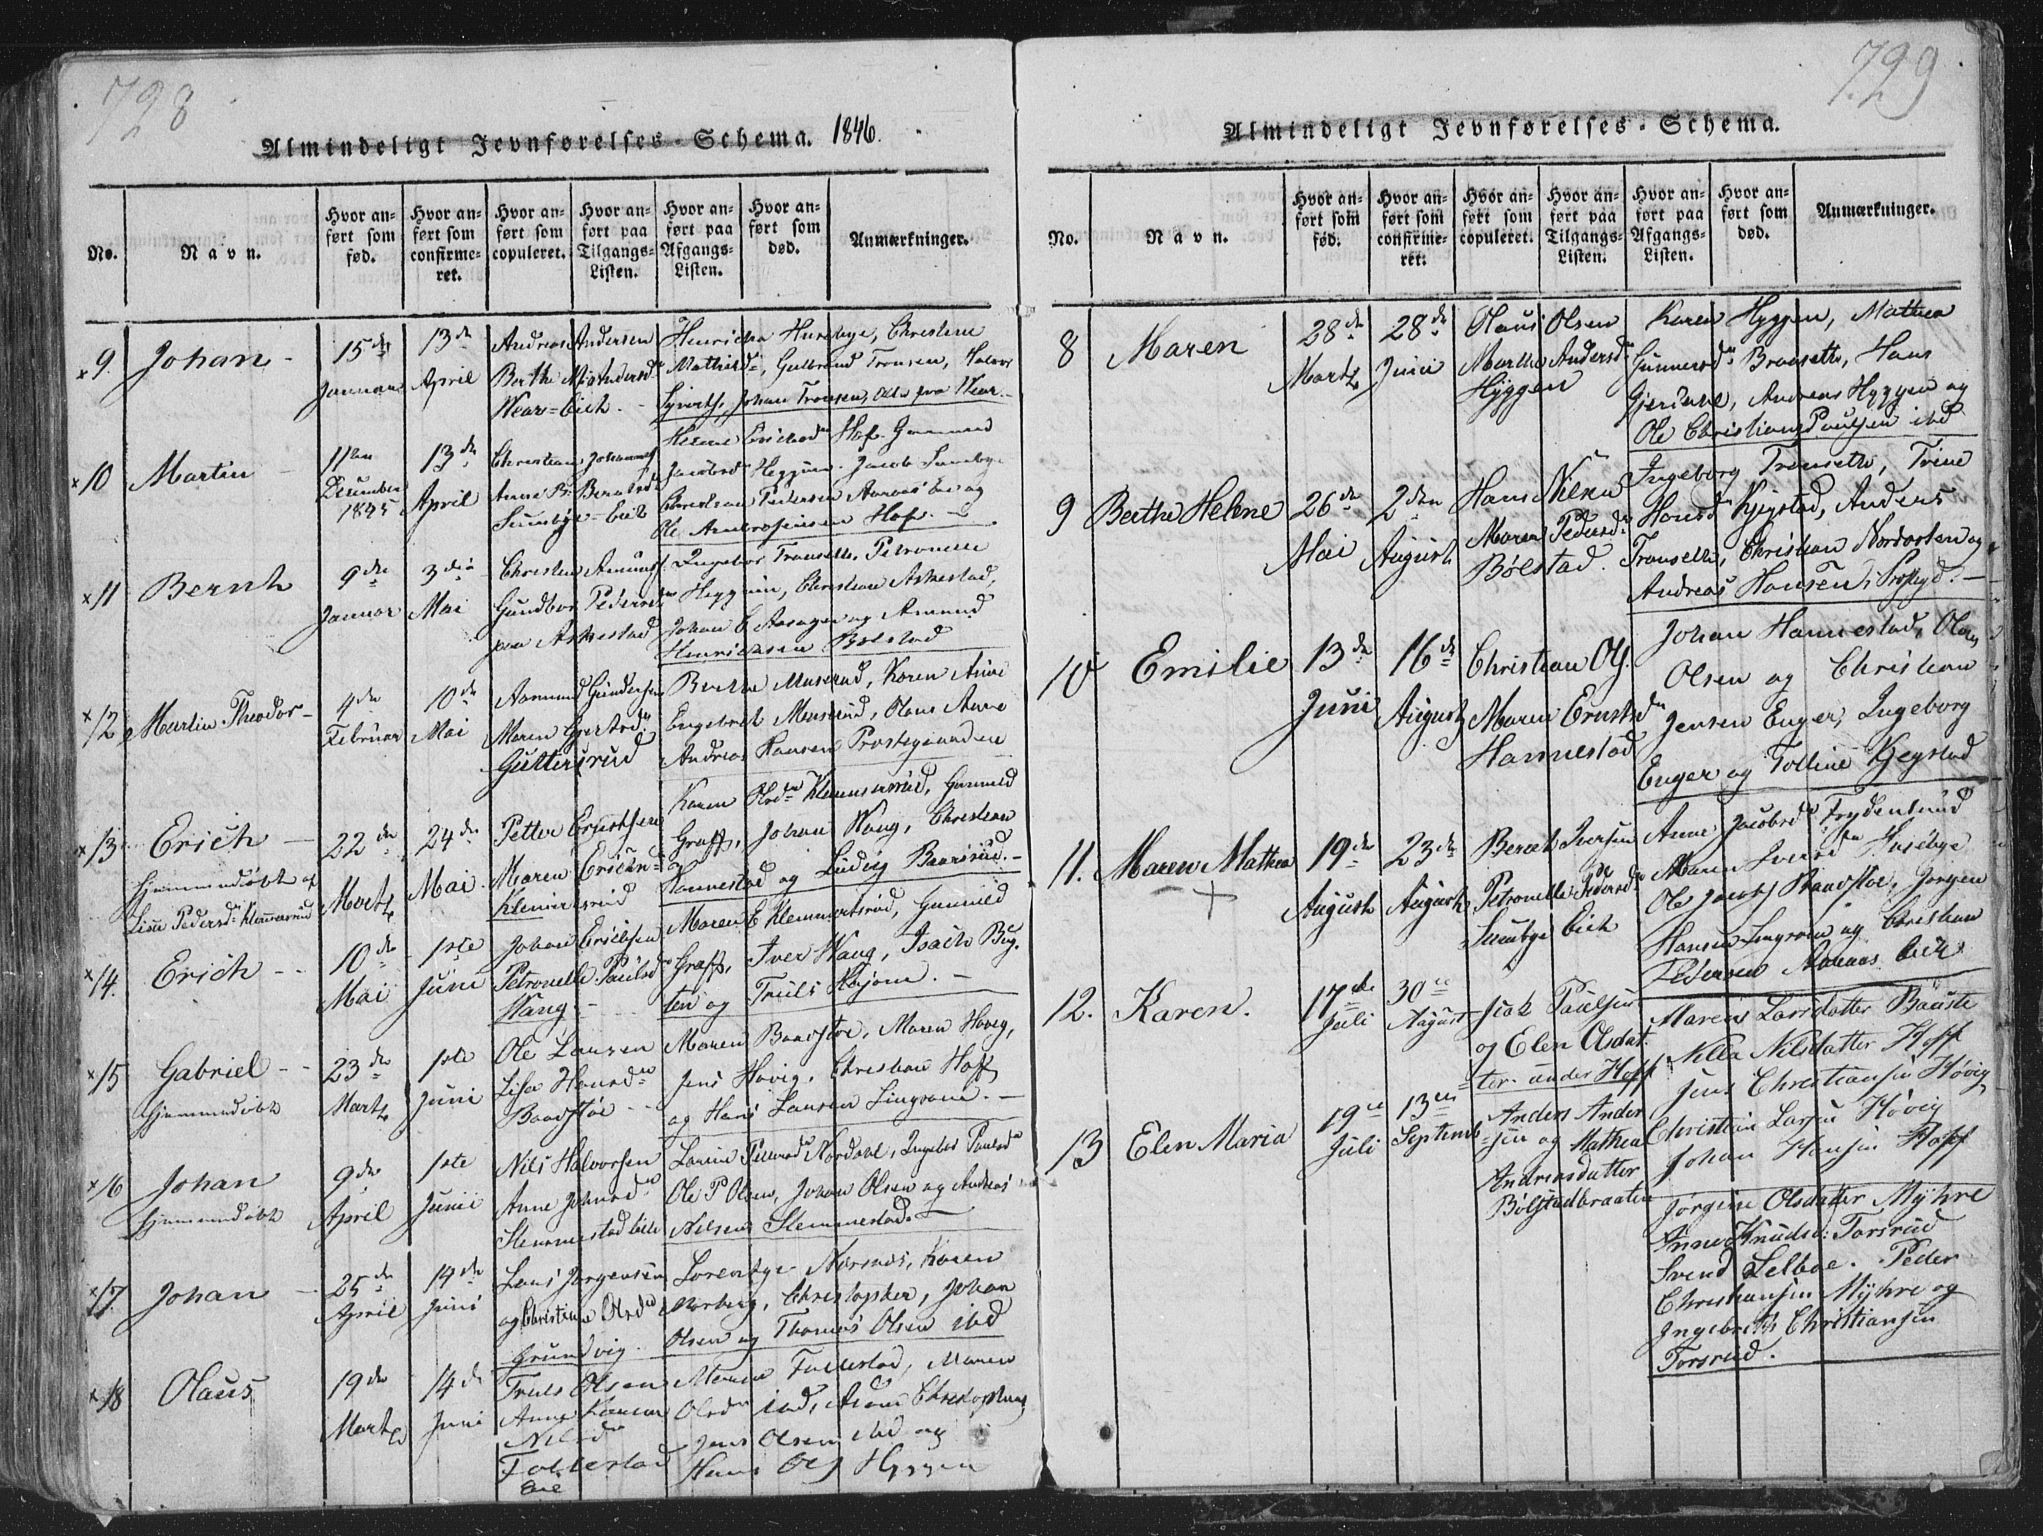 728
Almindeligt Jevnførelses-Schema. 1846.
No.
Navn.
Hvor an-
ført som
fød.
Hvor an-
ført som
confirme-
ret.
Hvor an-
ført som
copuleret.
Hvor an-
ført paa
Tilgangs-
Listen.
Hvor an-
ført paa
Afgangs-
Listen.
Hvor an-
ført som
død.
Anmærkninger.
×9. Johan -
15de
Januar
13de
April
Andreas Andersen
Berthe Andersd
Wear=Eich.
Henricha Huseby, Christine
Gulbrand Tronsen,
Johan Tronsen, Ole fra Wear.
×10 Martin -
11te
December
1845
13de
April
Christian Johannes
Anne Berntsd
Sundbye=Eich
Helene Hof. Gunnild
Jacobsd Heggum. Jacob Sundbye
Christian Pedersen Aaraas Eie og
Ole Ambrosiussen Hof.
×11 Bernt
9de
Januar
3die
Mai
Christen Amunds
Gundbor Pedersd
paa Askestad
Ingebor Transetth. Petronelle
Heggum, Christiane Askestad,
Johan E Aasagen og Amund
Henrichsen Bølstad
×12 Martin Theodor -
4de
Februar
10de
Mai
Aamund Gundersen
Maren Gjertsd
Guttersrud
Berthe Muserud, Karen Anne
Engebret Muserud, Olaus Aarre
Andreas Hansen Prestegaarden
×13 Erich -
hjemmedøbt af
Lise Pedersd Klemmetsrud
22de
Martz
24de
Mai
Petter Ernstsen
Maren Erichsd
Klemmetsrud
Karen Olsd Klemmetsrud, Gunnild
Graff, Johan Wang, Christian
Hannestad og Ludvig Baarsrud. -
×14. Erich - -
10de
Mai
1ste
Juni
Johan Erichsen
Petronelle Paulsd
Wang -
Maren E Klemmetsrud, Gunnild
Graff, Iver Wang, Isach Byg-
ten og Truls Højom. -
×15 Gabriel - -
hjemmedøbt
23de
Martz
1ste
Juni
Ole Larsen
Lisa Hansd
Baadstøe -
Maren Baadstøe, Maren Høvig,
Jens Høvig, Christian Hoff
og Hans Larsen Lingroen. -
×16 Johan
hjemmedøbt
9de
April
1ste
Juni
Nils Halvorsen
Anne Johnsd
Slemmestad Eie
Larine Pettersd Nordahl, Ingebor Paulsd
Ole P Olsen, Johan Olsen og Andreas
Nilsen Slemmestad. -
×17 Johan -
25de
April
14de
Juni
Lars Jørgensen
og Christiane Olsd
Grundvig.
Lorentze Nærsnes, Karen
Morberg, Christopher, Johan
Olsen og Thomas Olsen ibd
×18 Olaus
19de
Martz
14de
Juni
Truls Olsen
Anne Karine
Nilsd
Follestad
Eie
Maren Follestad, Maren
Olsd ibd, Christophers
Jens Olsen ibd og
Hans Ols Hyggen
729
Almindeligt Jevnførelses-Schema.
No.
Navn.
Hvor an-
ført som
fød.
Hvor an-
ført som
confirme-
ret.
Hvor an-
ført som
copuleret.
Hvor an-
ført paa
Tilgangs-
Listen.
Hvor an-
ført paa
Afgangs-
Listen.
Hvor an-
ført som
død.
Anmærkninger.
8 Maren
28de
Martz
28de
Juni
Olaus Olsen
Marthe Andersd
Hyggen
Karen Hyggen, Mathea
Gunnersd Braasetth, Hans
Gjerdahl, Andreas Hyggen og
Ole Christian Paulsen ibd
9 Berthe Helene
26de
Mai
2den
August
Hans Nilsen
Maren Pedersd
Bølstad.
Ingeborg Transetth, Trine
Hansd Kjegstad, Anders
Transetth, Christian Nordarken og
Andreas Hansen i Prstgd. -
10 Emilie
13de
Juni
16de
August
Christian Ols.
Maren Ernstsd
Hannestad
Johan Hannestad, Olaus
Olsen og Christian
Jensen Enger, Ingeborg
Enger og Tolline Kjegstad
11. Maren Mathea
+
19de
August
23de
August
Berent Iversen
Petronelle Pedersd
Sundbye Eich
Anne Jacobsd Frydenlund
Maren Iversd Husebye
Ole Jacobs Baadstøe, Jørgen
Hansen Lingroen og Christian
Pedersen Aaraas Eich
12. Karen.
17de
Juli
30te
August
Isak Paulsen
og Elen Olsdat-
ter under Hoff
Maren Larsdatter Baaste
Nilla Nilsdatter Hoff
Jens Christiansen Høvig
Christian Larsen Høvig
Johan Hansen Hoff
13 Elen Maria
19de
Juli
13de
Septemb
Anders Ander-
sen og Mathea
Andreasdatter
Bølstadbraaten
Jørgine Olsdatter Myhre
Anne Knudsd: Torsrud
Svend Selboe. Peder
Christiansen Myhre og
Ingebreth Christiansen
Torsrud.